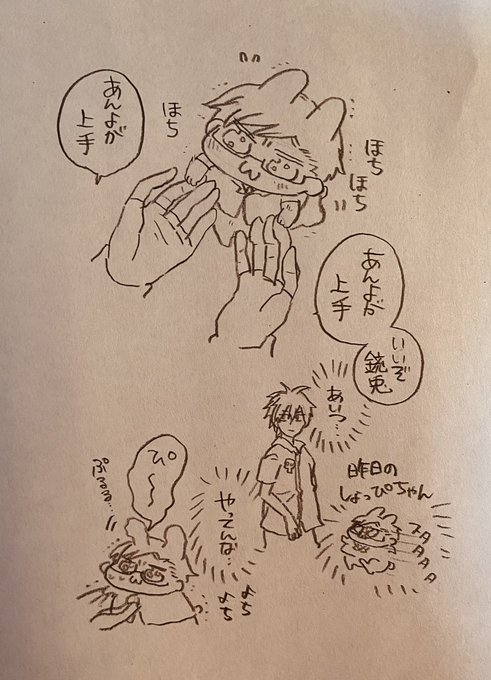 あんよが
上手
ぽち
ぽち
ぽち
あんよが
上手
いいぞ
銃兎
あいつ…
昨日の
しょっぴちゃん
スタタタタ
やってんな…
ぴ〜
ぷるるる…
よち
よち